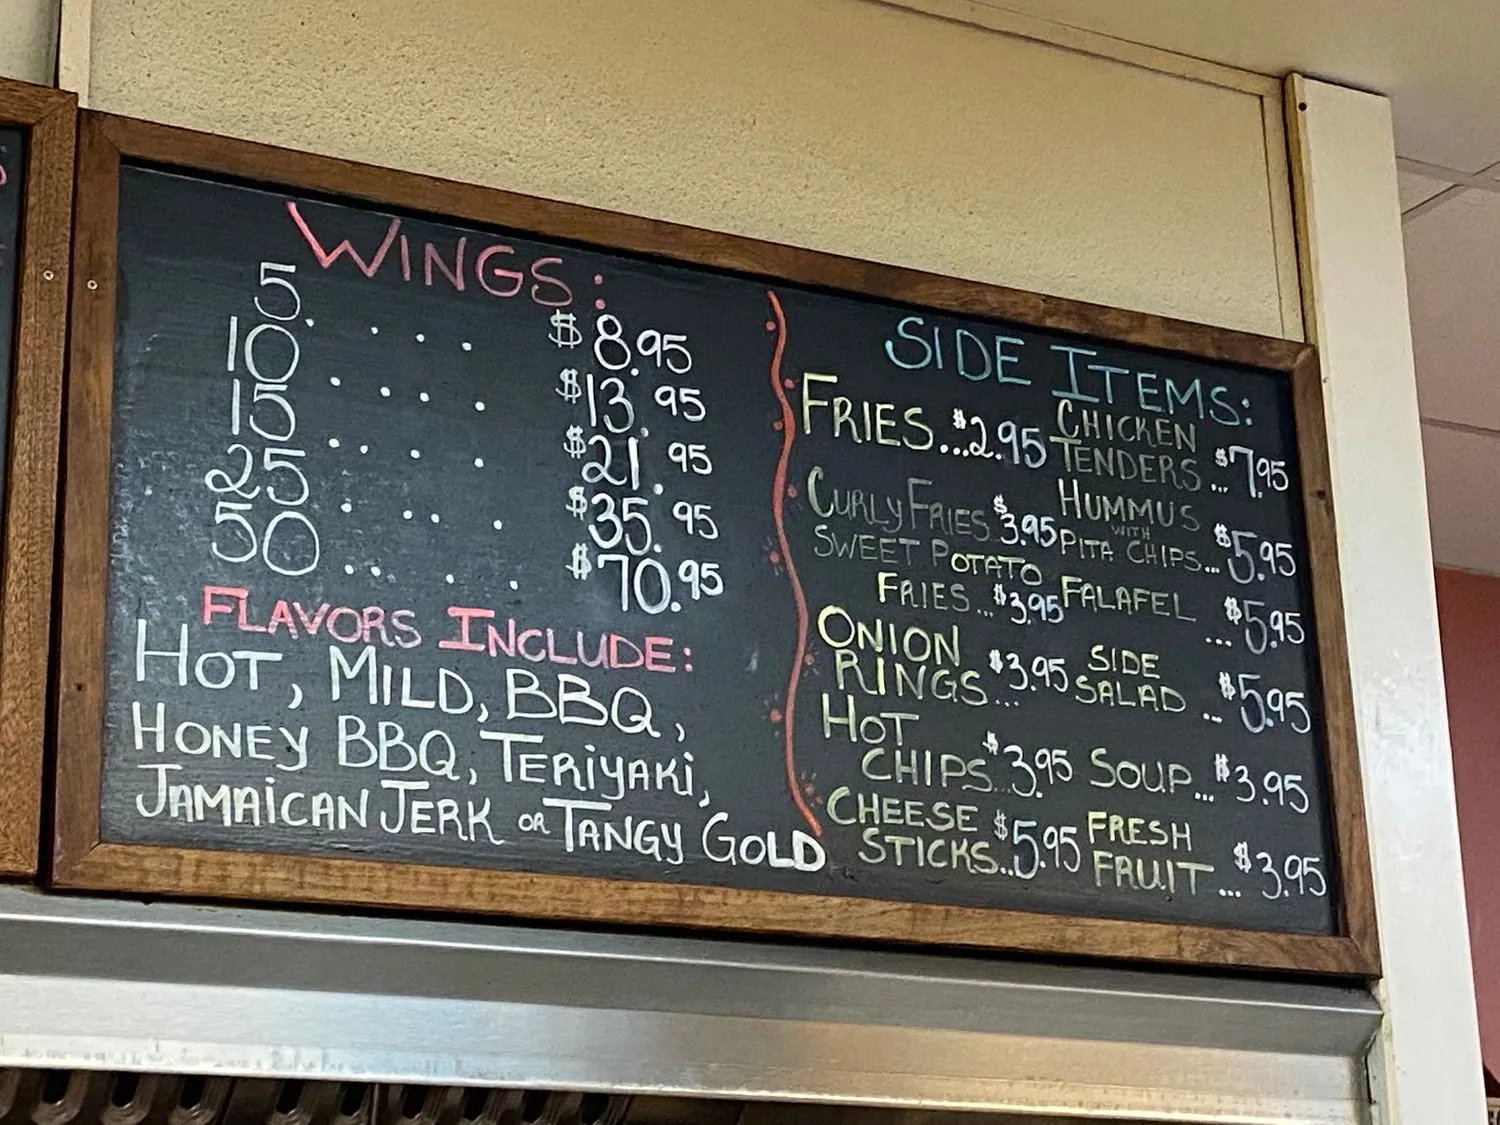 WINGS:
5.... $8.95
10.... $13.95
15.... $21.95
25.... $35.95
50..... $70.95
FLAVORS INCLUDE:
HOT, MILD, BBQ,
HONEY BBQ, TERiYAKi,
JAMAiCAN JERK OR TANGY GOLD
SIDE ITEMS:
FRIES...$2.95
CURLY FRIES $3.95
SWEET POTATO
FRIES...$3.95
ONION
RINGS... $3.95
HOT
CHIPS...$3.95
CHEESE
STICKS...$5.95
CHICKEN
TENDERS... $7.95
HUMMUS
WITH
PITA CHIPS... $5.95
FALAFEL ... $5.95
SIDE
SALAD ... $5.95
SOUP... $3.95
FRESH
FRUIT... $3.95